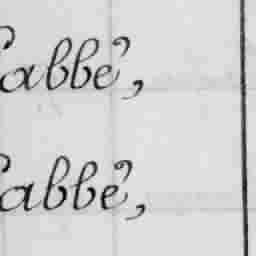 abbé,
abbé,